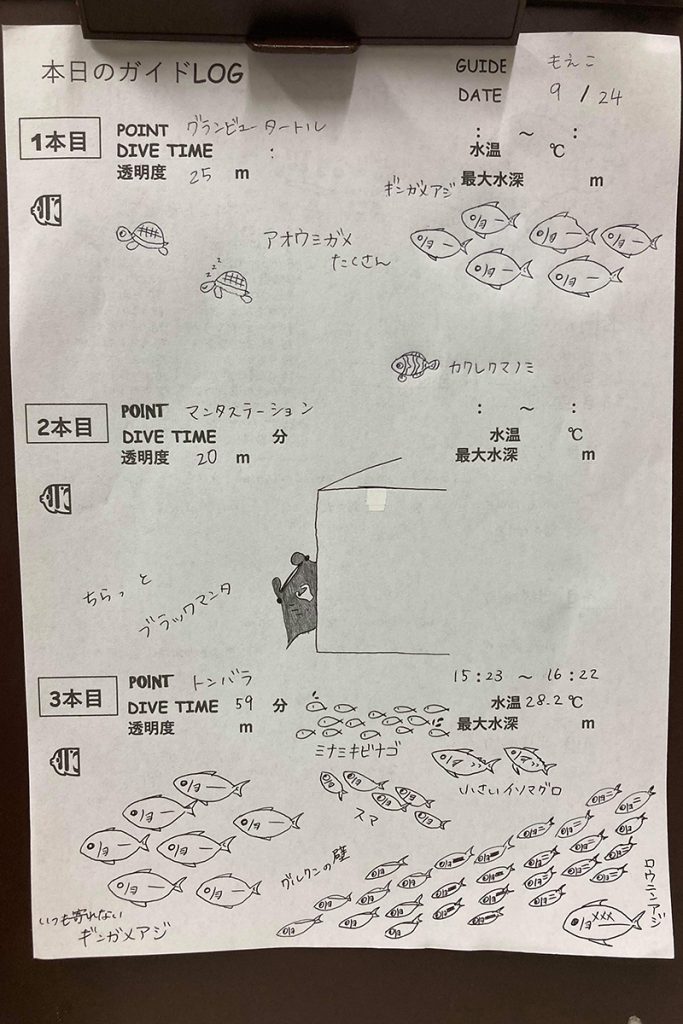 本日のガイドLOG
GUIDE もえこ
DATE 9 / 24
1本目
POINT グランビュータートル
DIVE TIME :
: ～ :
水温 ℃
透明度 25 m
最大水深 m
ギンガメアジ
アオウミガメ
たくさん
zzz
カクレクマノミ
2本目
POINT マンタステーション
: ～ :
DIVE TIME 分
水温 ℃
透明度 20 m
最大水深 m
ちらっと
ブラックマンタ
3本目
POINT トンバラ
15:23 ～ 16:22
DIVE TIME 59 分
水温 28.2℃
透明度 m
最大水深 m
ミナミキビナゴ
小さいイソマグロ
スマ
グルクンの壁
ロウニンアジ
いつも寄れない
ギンガメアジ